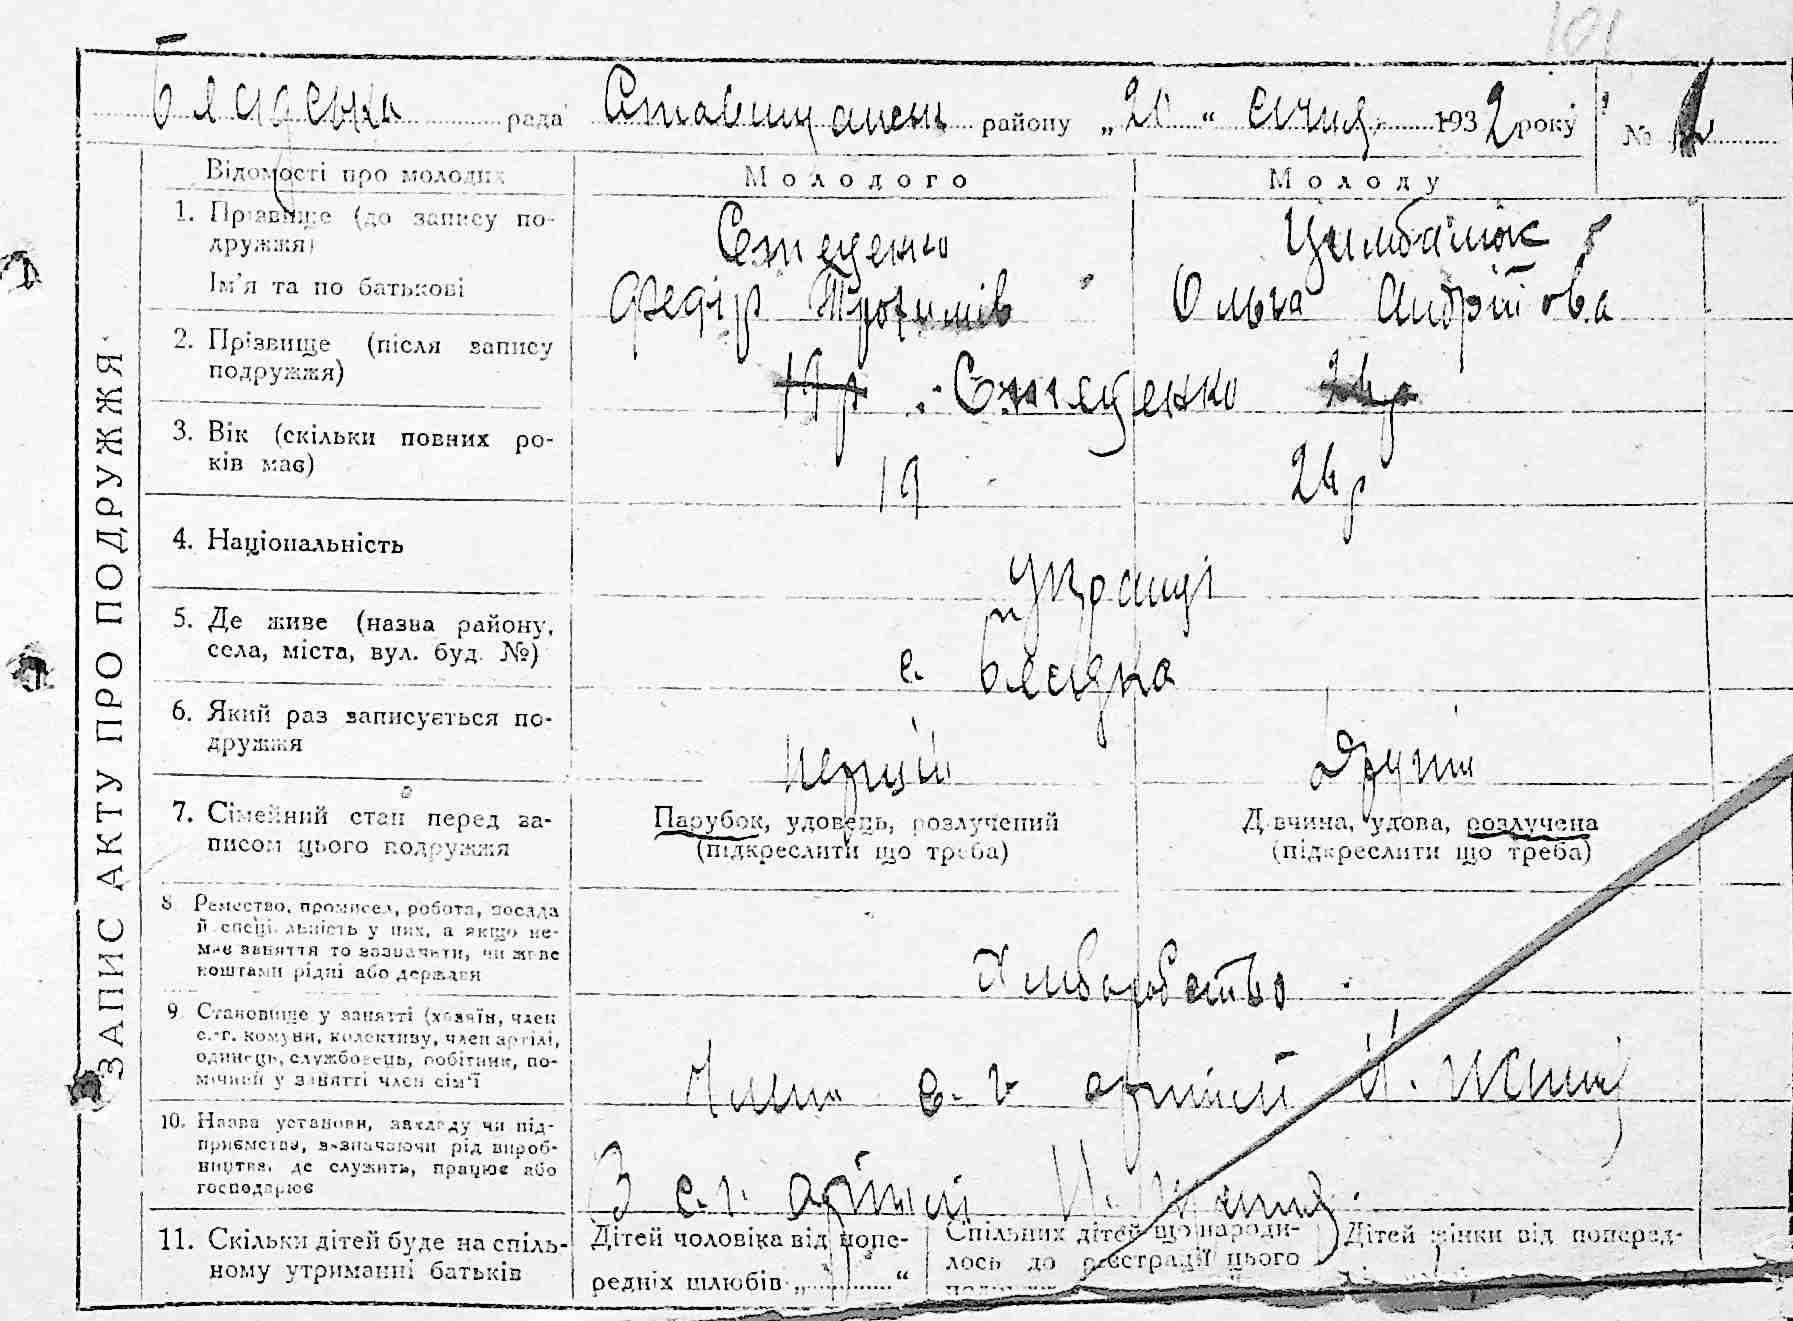 101
рада Ставищанськ району „20“ січня 1932 року № 2
Відомості про молодих Молодого Молоду
1. Прізвище (до запису по-
дружжя) Стеценко Цимбалюк
Ім'я та по батькові Федір Трохимів Ольга Андрійова
2. Прізвище (після запису
подружжя) 19 р Стеценко 24р
3. Вік (скільки повних ро-
ків має) 19 24р
4. Національність Украинці
5. Де живе (назва району,
села, міста, вул. буд. №) с.
6. Який раз записується по-
дружжя перший другий
7. Сімейний стан перед за-
писом цього подружжя
Парубок, удовець, розлучений Дівчина, удова, розлучена
(підкреслити що треба) (підкреслити що треба)
8. Ремество, промисел, робота, посада
й спеціальність у них, а якщо не-
має заняття то зазначити, чи живе
коштами рідні або держави Хліборобство
9. Становище у занятті (хазяїн, член
с.-г. комуни, колективу, член артілі,
одинець, службовець, робітник, по-
мічний у занятті член сім'ї Члени с. г. артілі
10. Назва установи, закладу чи під-
приємства, зазначаючи рід вироб-
ництва, де служить, працює або
господарює В с. г. артілі
11. Скільки дітей буде на спіль-
ному утриманні батьків
Дітей чоловіка від попе-
редніх шлюбів „ “
Спільних дітей що народи-
лось до реєстрації цього
Дітей жінки від поперед-
ЗАПИС АКТУ ПРО ПОДРУЖЖЯ